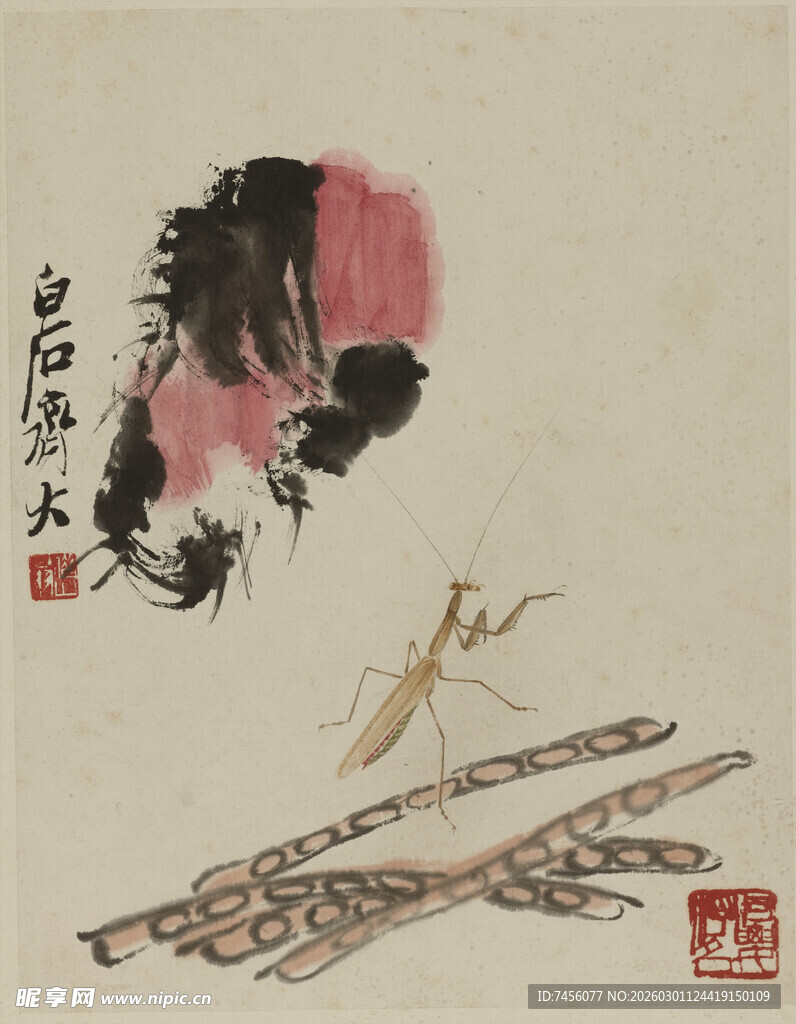 白石齊大
昵享网 www.nipic.cn
ID:7456077 NO:20260301124419150109